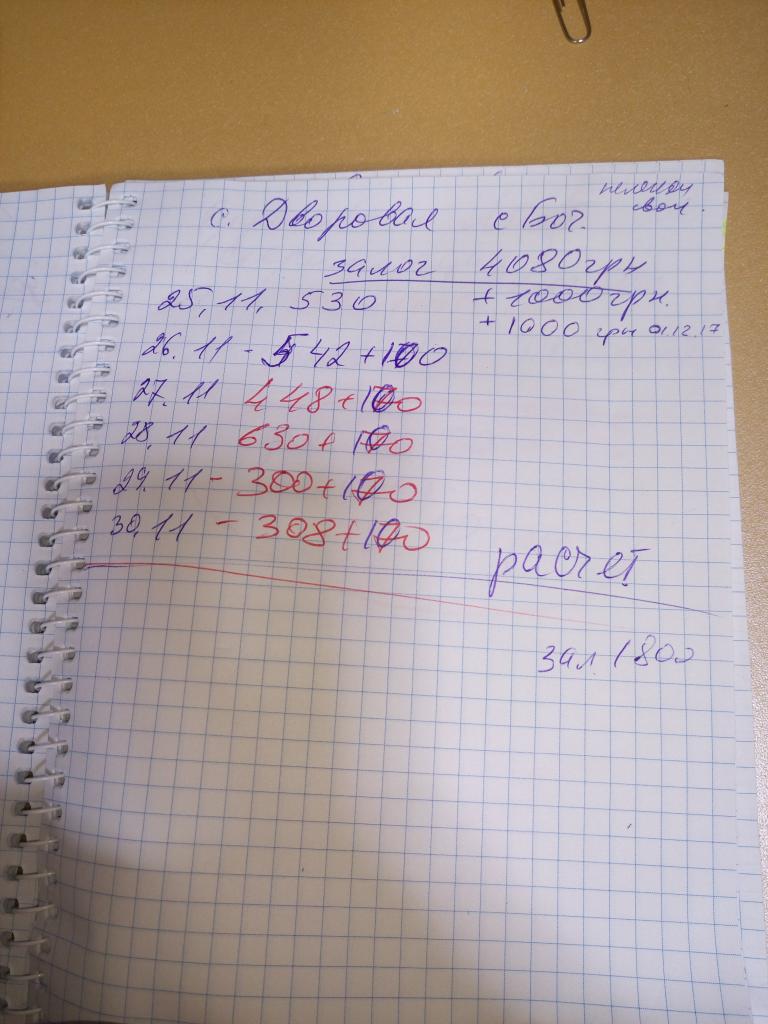 с. Дворовая с Боч.
залог 4080 грн
25.11. 530 +1000 грн.
+1000 грн 01.12.17
26.11 - 542+100
27.11 448+100
28.11 630+100
29.11 - 300+100
30.11 - 308+100
расчет
зал 1800